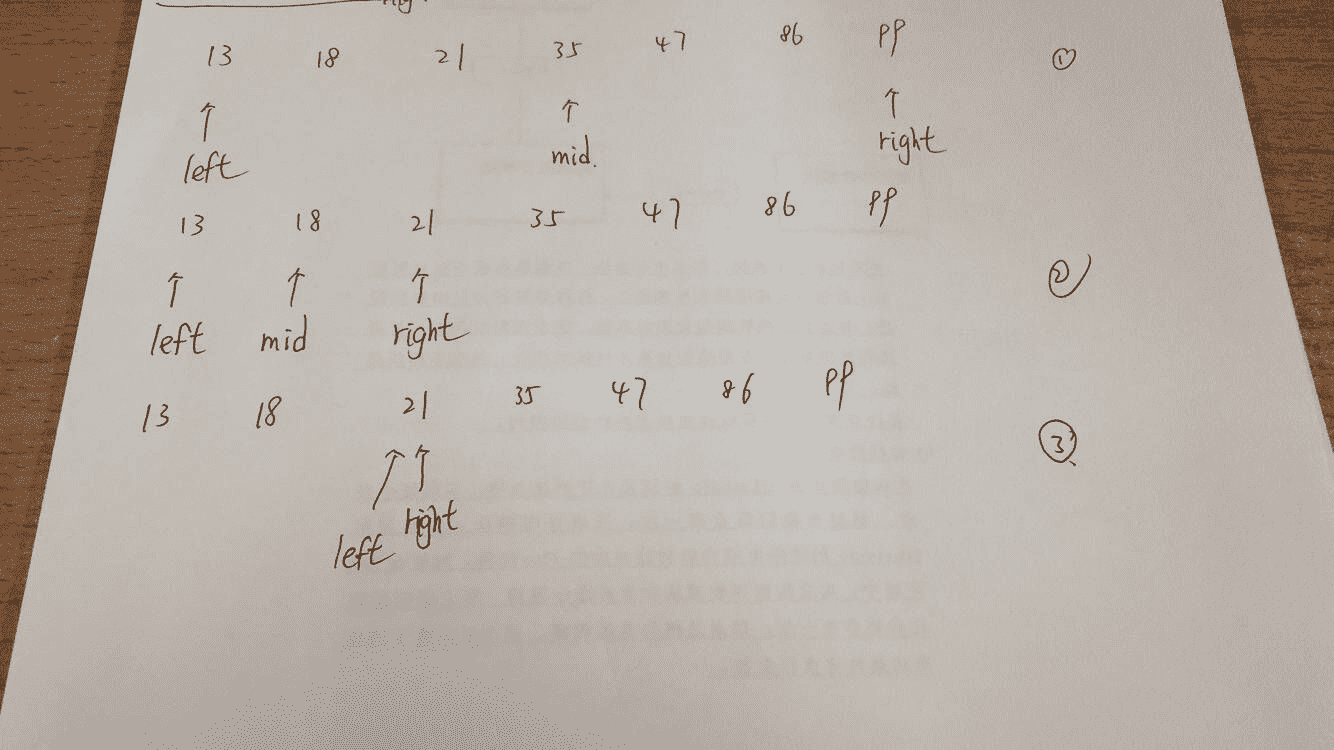 13 18 21 35 47 86 99 ①
left mid. right
13 18 21 35 47 86 99 ②
left mid right
13 18 21 35 47 86 99 ③
left right